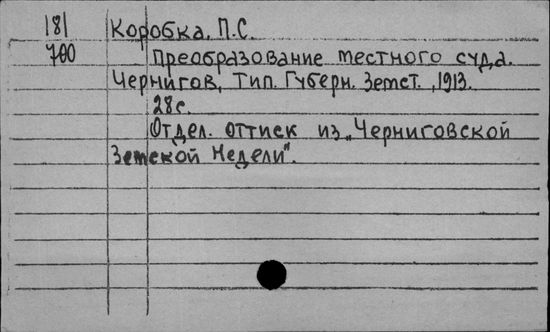 181 Коробка, П.С.
700 Преобразование местного суда.
Чернигов, Тип. Губерн. Земст., 1913.
28с.
Отдел. оттиск из „Черниговской
Земской Недели".